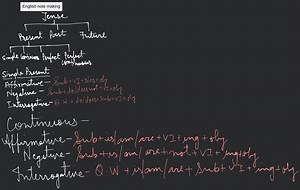 English note making
Tense
Present Past Future
Simple Continuous Perfect Perfect continuous
Simple Present
Affirmative - Sub+V1+s/es+obj
Negative - Sub+do/does+not+V1+obj
Interrogative - Q W + do/does+Sub+V1+obj
Continuous -
Affirmative - Sub+is/am/are+V1+ing+obj
Negative - Sub+is/am/are+not+V1+ing+obj
Interrogative - Q W + is/am/are + Sub + V1 + ing + obj